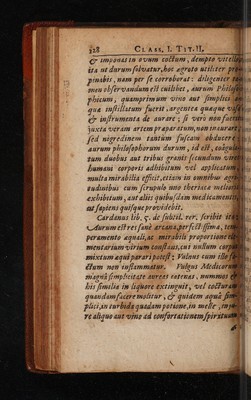 328 CLASS. I. TIT. II.
& imponas in ovum coctum, dempto vitello
ita ut durum solvatur, hoc agroto utiliter pro-
pinabis, nam per se corroborat: diligenter ta-
men observandum est cuilibet, aurum Philoso-
phicum, quamprimum vino aut simplici a-
qua instillatum fuerit, argentea quaque vasa
& instrumenta de aurare; si vero non fuerit
juxta veram artem praparatum, non in aurare
sed nigredinem tantum fuscam obducere:
aurum philosophorum durum, id est, coagula-
tum duobus aut tribus granis secundum vires
humani corporis adhibitum vel applicatum
multa mirabilia efficit, etiam in omnibus agri-
tudinibus cum scrupulo uno theriaca melioris
exhibitum, aut aliis quibusdam medicamentis,
ut sapiens quisque providebit.
Cardanus lib. 5. de subtil. rer. scribit ita
Aurum est res sanè arcana, perfectissima, tem-
peramento aquali, ac mirabili proportione ele-
mentarium virium constans, cui nullum corpus
mixtum aquè parari potest: Vulnus cum illo fa-
ctum non inflammatur. Vulgus Medicorum
magnâ simplicitate aureos veteres, nummos &
his similia in liquore extinguit, vel cocturam
quandam facere molitur, & quidem aquâ sim-
plici, in turbida quadam potione, in melle, in ju-
re aliquo aut vino ad confortationem spirituum